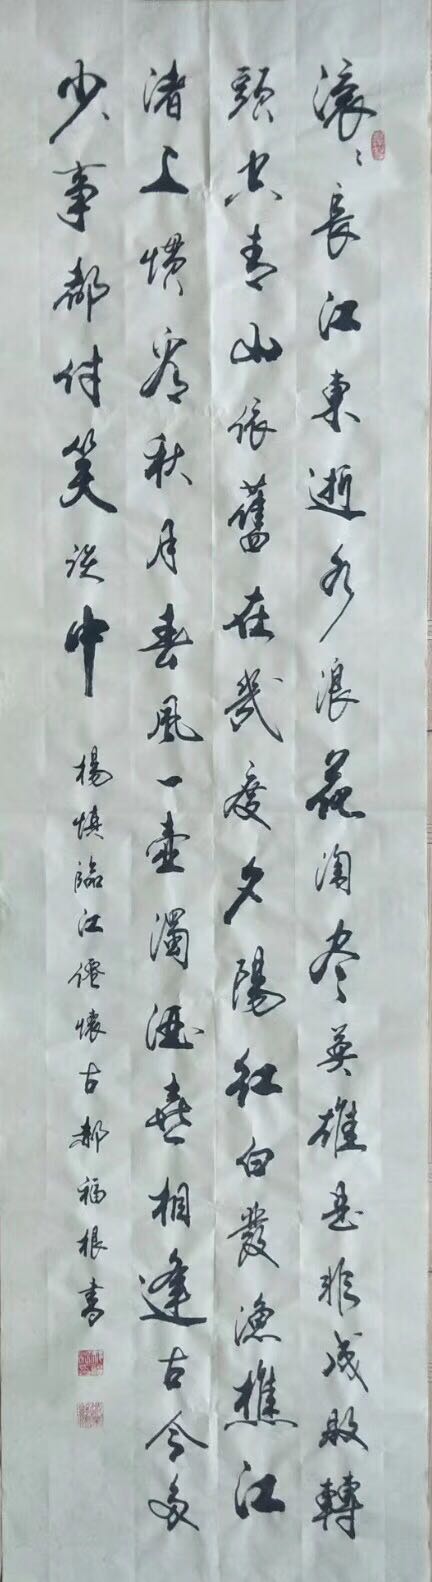 滚〻長江東逝水浪花淘尽英雄是非成敗轉
頭空青山依舊在幾度夕陽红白发漁樵江
渚上惯看秋月春風一壶濁酒喜相逢古今多
少事都付笑谈中
楊慎臨江僊懐古郝福根書